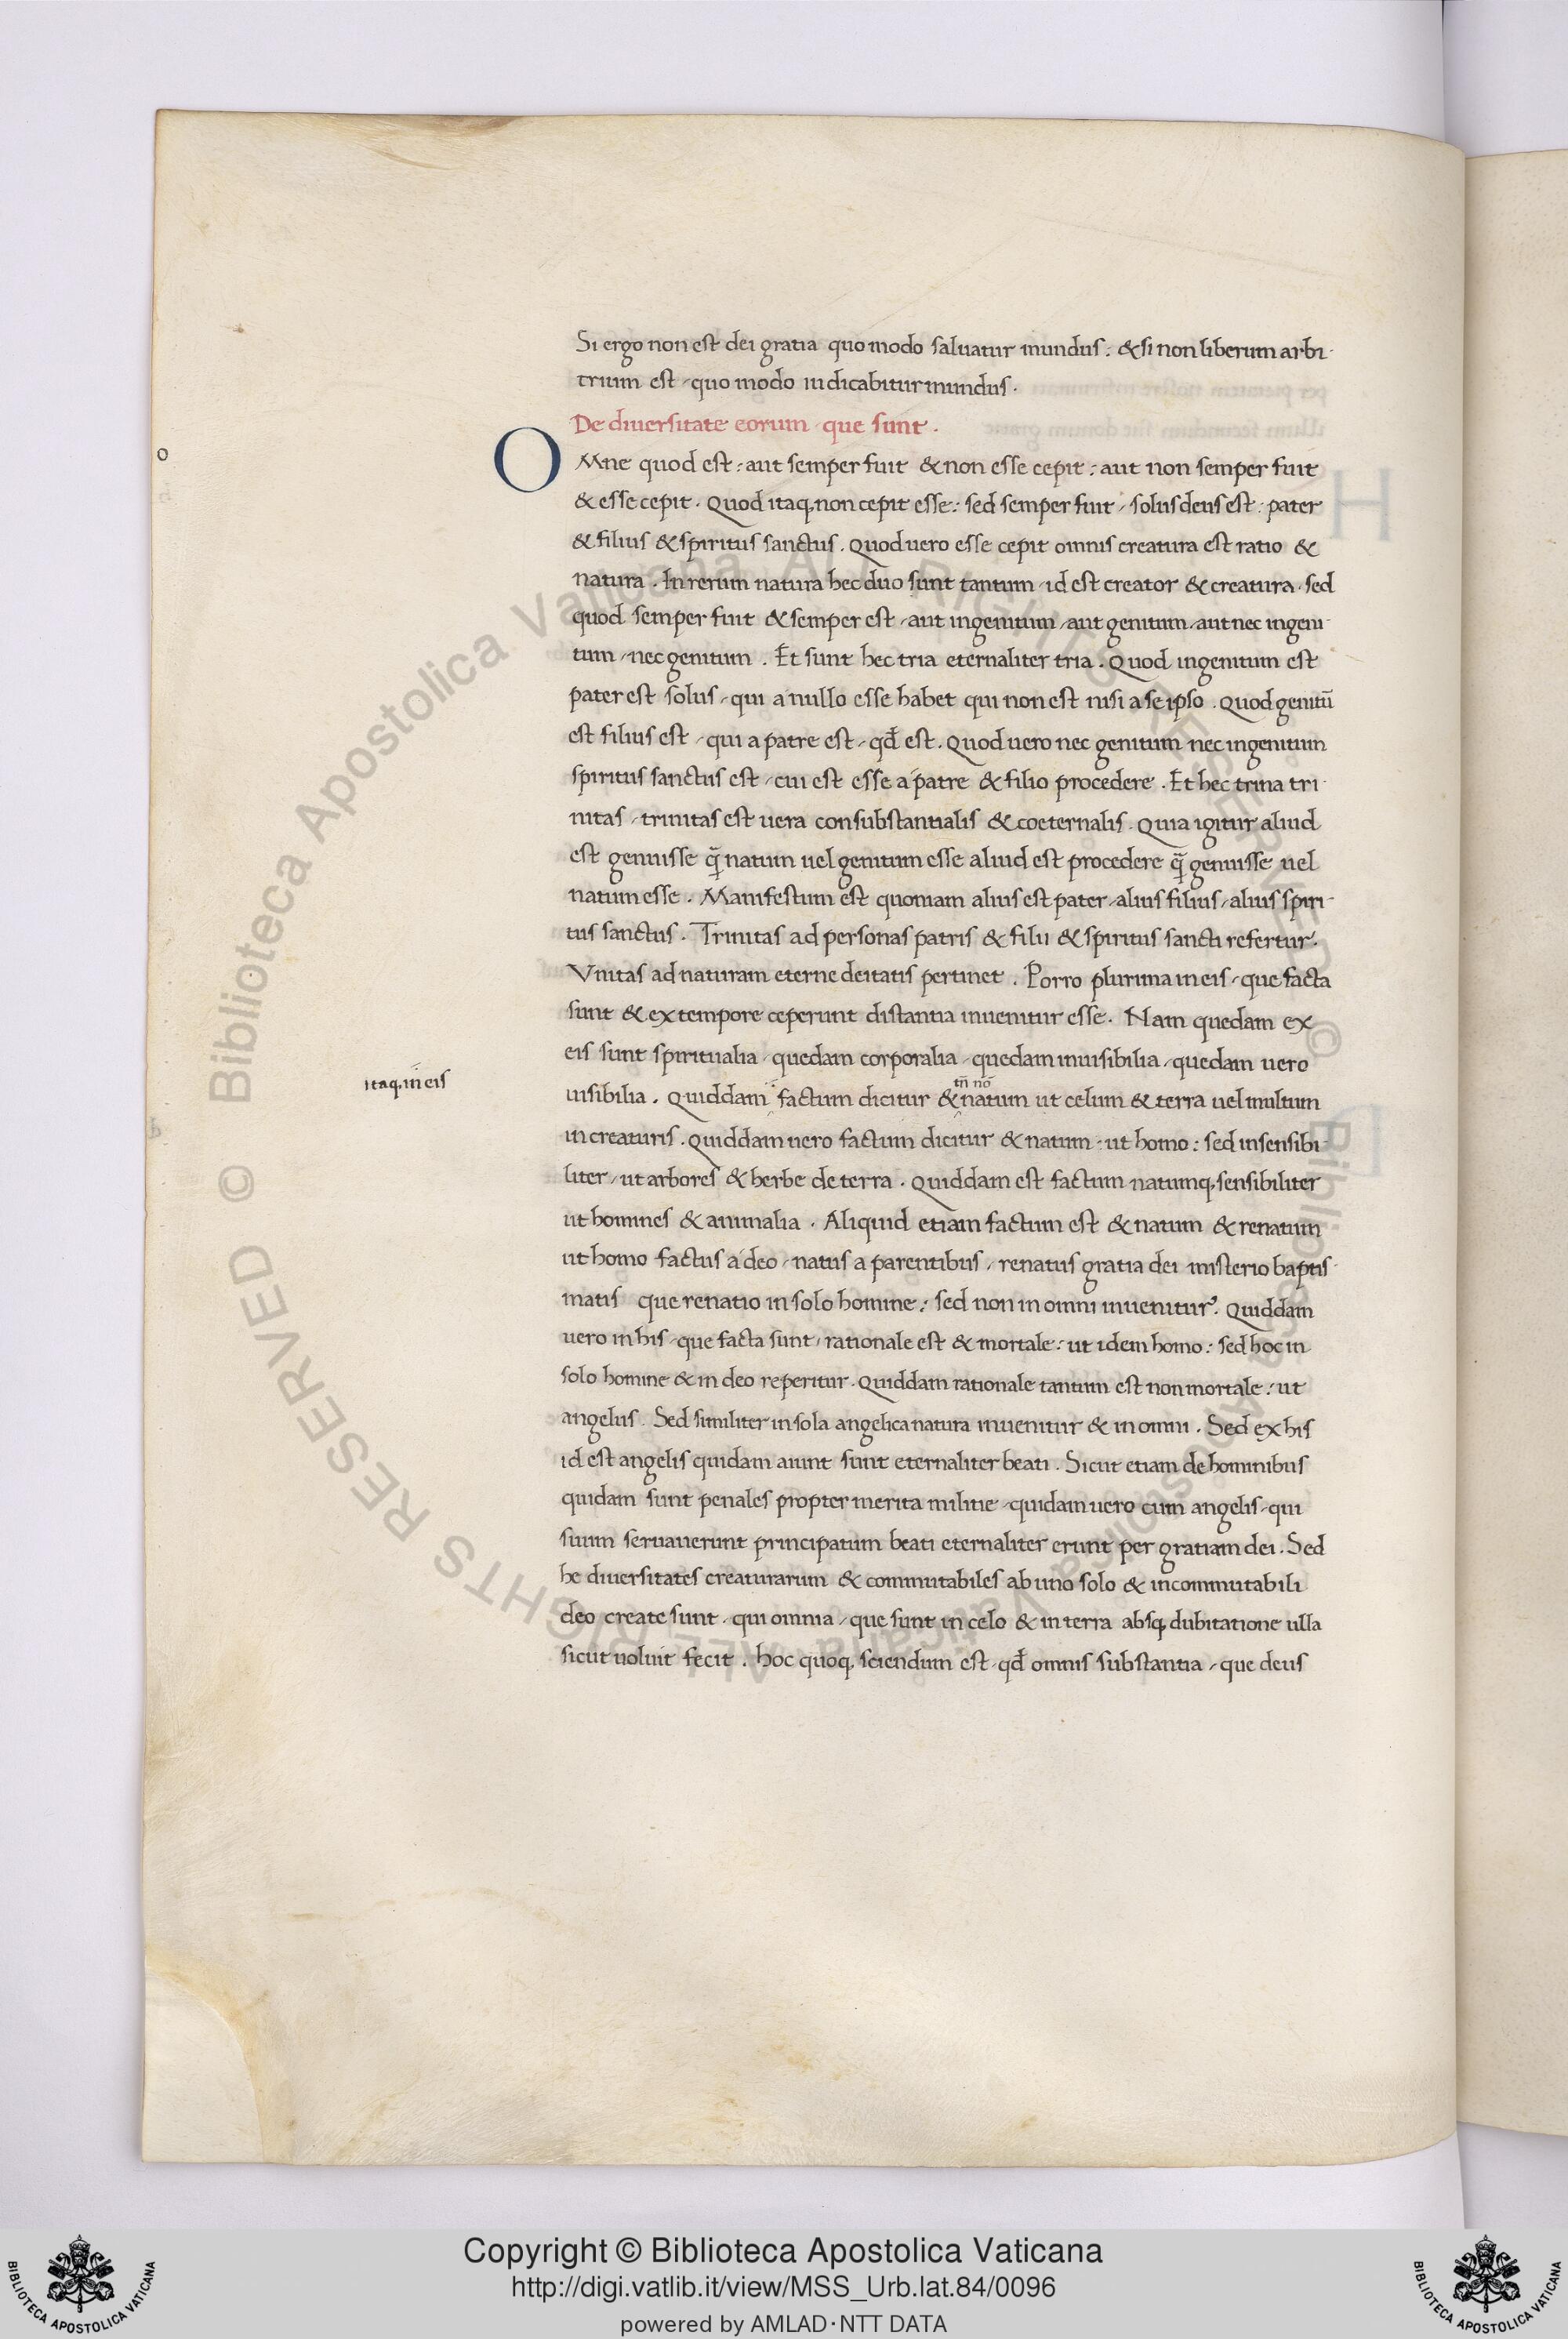 Si ergo non est dei gratia quo modo saluatur mundus: & si non liberum arbi-
trium est, quo modo iudicabitur mundus.
De diuersitate eorum que sunt.
OMne quod est: aut semper fuit & non esse cepit: aut non semper fuit
o
& esse cepit. Quod itaq; non cepit esse: sed semper fuit, solus deus est: pater
& filius & spiritus sanctus. Quod uero esse cepit omnis creatura est ratio &
natura. In rerum natura hec duo sunt tantum, id est creator & creatura. sed
quod semper fuit & semper est, aut ingenitum, aut genitum, aut nec ingeni-
tum, nec genitum. Et sunt hec tria eternaliter tria. Quod ingenitum est
pater est solus, qui a nullo esse habet qui non est nisi a se ipso. Quod genitū
est filius est, qui a patre est, qđ est. Quod uero nec genitum nec ingenitum
spiritus sanctus est, cui est esse a patre & filio procedere. Et hec trina tri-
nitas, trinitas est uera consubstantialis & coeternalis. Quia igitur aliud
est genuisse q̄ natum uel genitum esse aliud est procedere q̄ genuisse uel
natum esse. Manifestum est quoniam alius est pater, alius filius, alius spiri-
tus sanctus. Trinitas ad personas patris & filii & spiritus sancti refertur.
Vnitas ad naturam eterne deitatis pertinet. Porro plurima in eis, que facta
sunt & ex tempore ceperunt distantia inuenitur esse. Nam quedam ex
eis sunt spiritualia, quedam corporalia, quedam inuisibilia, quedam uero
itaq; in eis
tn̄ nō
uisibilia. Quiddam factum dicitur & natum ut celum & terra uel multum
in creaturis. Quiddam uero factum dicitur & natum, ut homo: sed insensibi-
liter, ut arbores & herbe de terra. Quiddam est factum natumq; sensibiliter
ut homines & animalia. Aliquid etiam factum est & natum & renatum
ut homo factus a deo, natus a parentibus, renatus gratia dei misterio baptis-
matis que renatio in solo homine: sed non in omni inuenitur. Quiddam
uero in his, que facta sunt, rationale est & mortale: ut idem homo: sed hoc in
solo homine & in deo reperitur. Quiddam rationale tantum est non mortale: ut
angelus. Sed similiter in sola angelica natura inuenitur & in omni. Sed ex his
id est angelis quidam aiunt sunt eternaliter beati. Sicut etiam de hominibus
quidam sunt penales propter merita militie, quidam uero cum angelis, qui
suum seruauerunt principatum beati eternaliter erunt per gratiam dei. Sed
he diuersitates creaturarum & commutabiles ab uno solo & incommutabili
deo create sunt, qui omnia, que sunt in celo & in terra absq; dubitatione ulla
sicut uoluit fecit. Hoc quoq; sciendum est, qđ omnis substantia, que deus
© Biblioteca Apostolica Vaticana ALL RIGHTS RESERVED
© Biblioteca Apostolica Vaticana ALL RIGHTS RESERVED
Copyright © Biblioteca Apostolica Vaticana
http://digi.vatlib.it/view/MSS_Urb.lat.84/0096
powered by AMLAD·NTT DATA
BIBLIOTECA APOSTOLICA VATICANA
BIBLIOTECA APOSTOLICA VATICANA